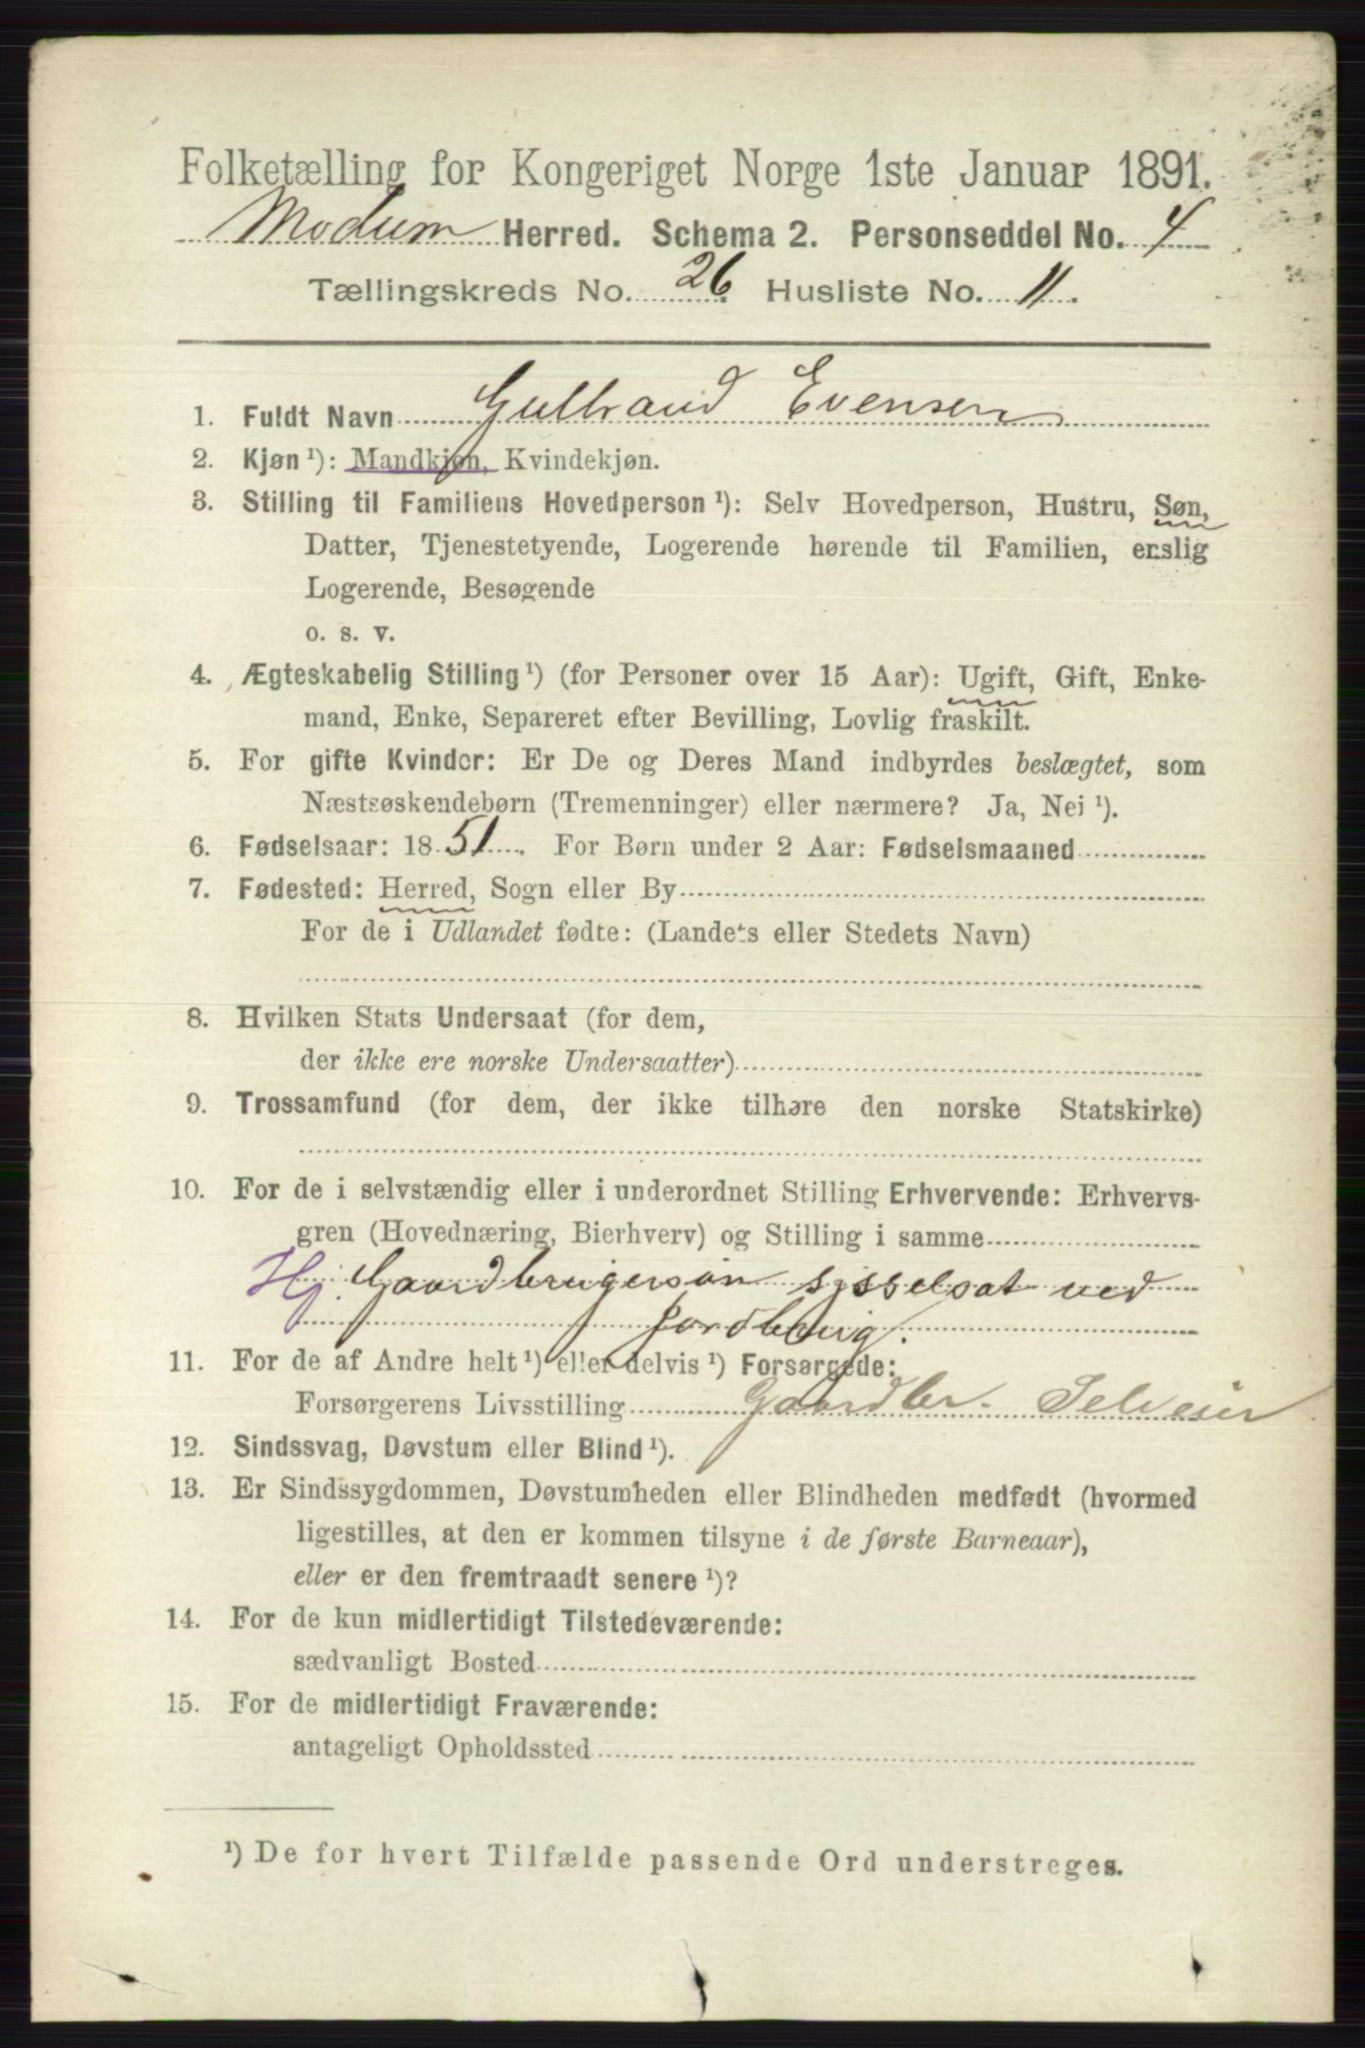 Folketælling for Kongeriget Norge 1ste Januar 1891.
Modum Herred. Schema 2. Personseddel No. 4
Tællingskreds No. 26. Husliste No. 11.
1. Fuldt Navn Gulbrand Evensen
2. Kjøn ¹): Mandkjøn, Kvindekjøn.
3. Stilling til Familiens Hovedperson ¹): Selv Hovedperson, Hustru, Søn,
Datter, Tjenestetyende, Logerende hørende til Familien, enslig
Logerende, Besøgende
o. s. v.
4. Ægteskabelig Stilling ¹) (for Personer over 15 Aar): Ugift, Gift, Enke-
mand, Enke, Separeret efter Bevilling, Lovlig fraskilt.
5. For gifte Kvinder: Er De og Deres Mand indbyrdes beslægtet, som
Næstsøskendebørn (Tremenninger) eller nærmere? Ja, Nei ¹).
6. Fødselsaar: 1851. For Børn under 2 Aar: Fødselsmaaned
7. Fødested: Herred, Sogn eller By
For de i Udlandet fødte: (Landets eller Stedets Navn)
8. Hvilken Stats Undersaat (for dem,
der ikke ere norske Undersaatter)
9. Trossamfund (for dem, der ikke tilhøre den norske Statskirke)
10. For de i selvstændig eller i underordnet Stilling Erhvervende: Erhvervs-
gren (Hovednæring, Bierhverv) og Stilling i samme
Hj. Gaardbrugersøn sysselsat ved
Jordbrug.
11. For de af Andre helt ¹) eller delvis ¹) Forsørgede:
Forsørgerens Livsstilling Gaardbr. Selveier
12. Sindssvag, Døvstum eller Blind ¹).
13. Er Sindssygdommen, Døvstumheden eller Blindheden medfødt (hvormed
ligestilles, at den er kommen tilsyne i de første Barneaar),
eller er den fremtraadt senere ¹)?
14. For de kun midlertidigt Tilstedeværende:
sædvanligt Bosted
15. For de midlertidigt Fraværende:
antageligt Opholdssted
¹) De for hvert Tilfælde passende Ord understreges.